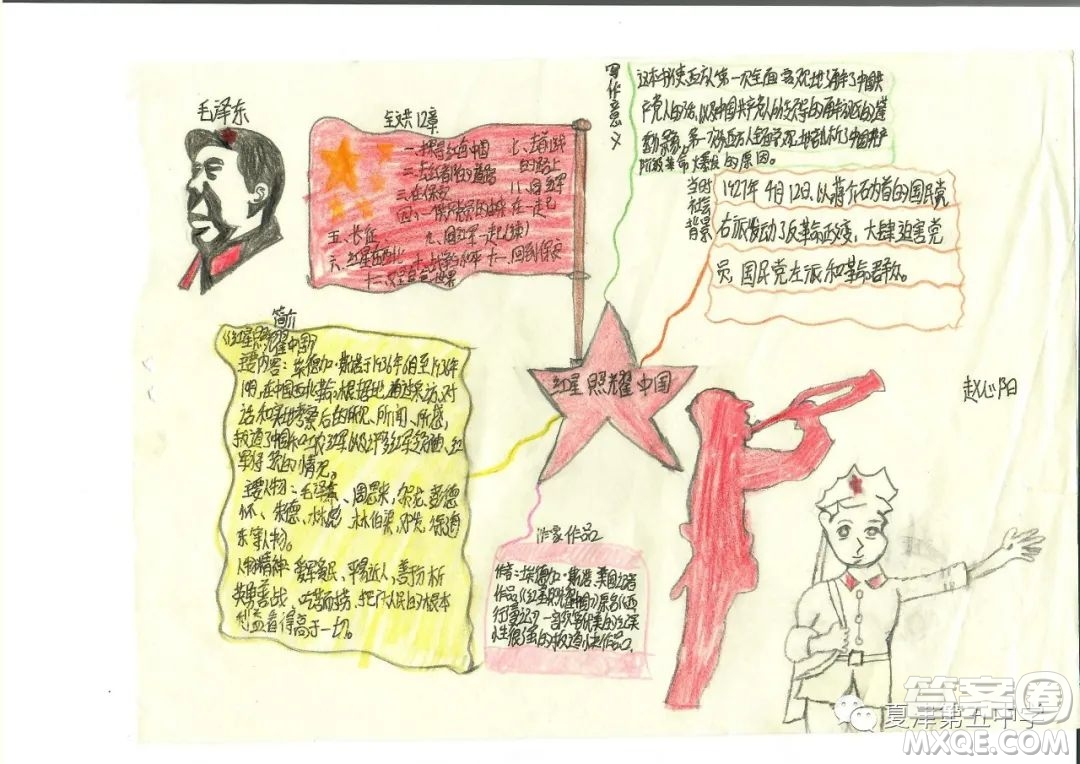 毛泽东
全书共12章
一、探寻红色中国
二、去红都的道路
三、在保安
四、一个共产党员的由来
五、长征
六、红星在西北
七、去前线的路上
八、同红军在一起
九、同红军一起(续)
十、战争与和平
十一、回到保安
十二、又是白色世界
写作意义
这本书使西方人第一次全面客观地了解了中国共
产党人的
阶级革命爆发的原因。
当时
社会
背景
1927年4月12日，以蒋介石为首的国民党
右派发动了反革命政变，大肆迫害党
员，国民党左派和革命群众。
简介
《红星照耀中国》
主要内容：埃德加·斯诺于1936年6月至1936年
10月，在中国西北革命根据地通过采访、对
话和实地考察后的所见、所闻、所感，
报道了中国和工农红军以及许多红军领袖、红
军将领的情况。
主要人物：毛泽东、周恩来，贺龙、彭德
怀、朱德、林彪、林伯渠、邓发、徐海
东等人物。
人物精神：爱军爱民、平易近人、善于分析
英勇善战、吃苦耐劳、把广大人民的根本
利益看得高于一切。
红星照耀中国
作家作品
作者：埃德加·斯诺，美国记者
作品：《红星照耀中国》原名《西
行漫记》一部文笔优美的纪实
性很强的报道性作品。
赵心阳
答案圈
夏津第五中学
MXQE.COM